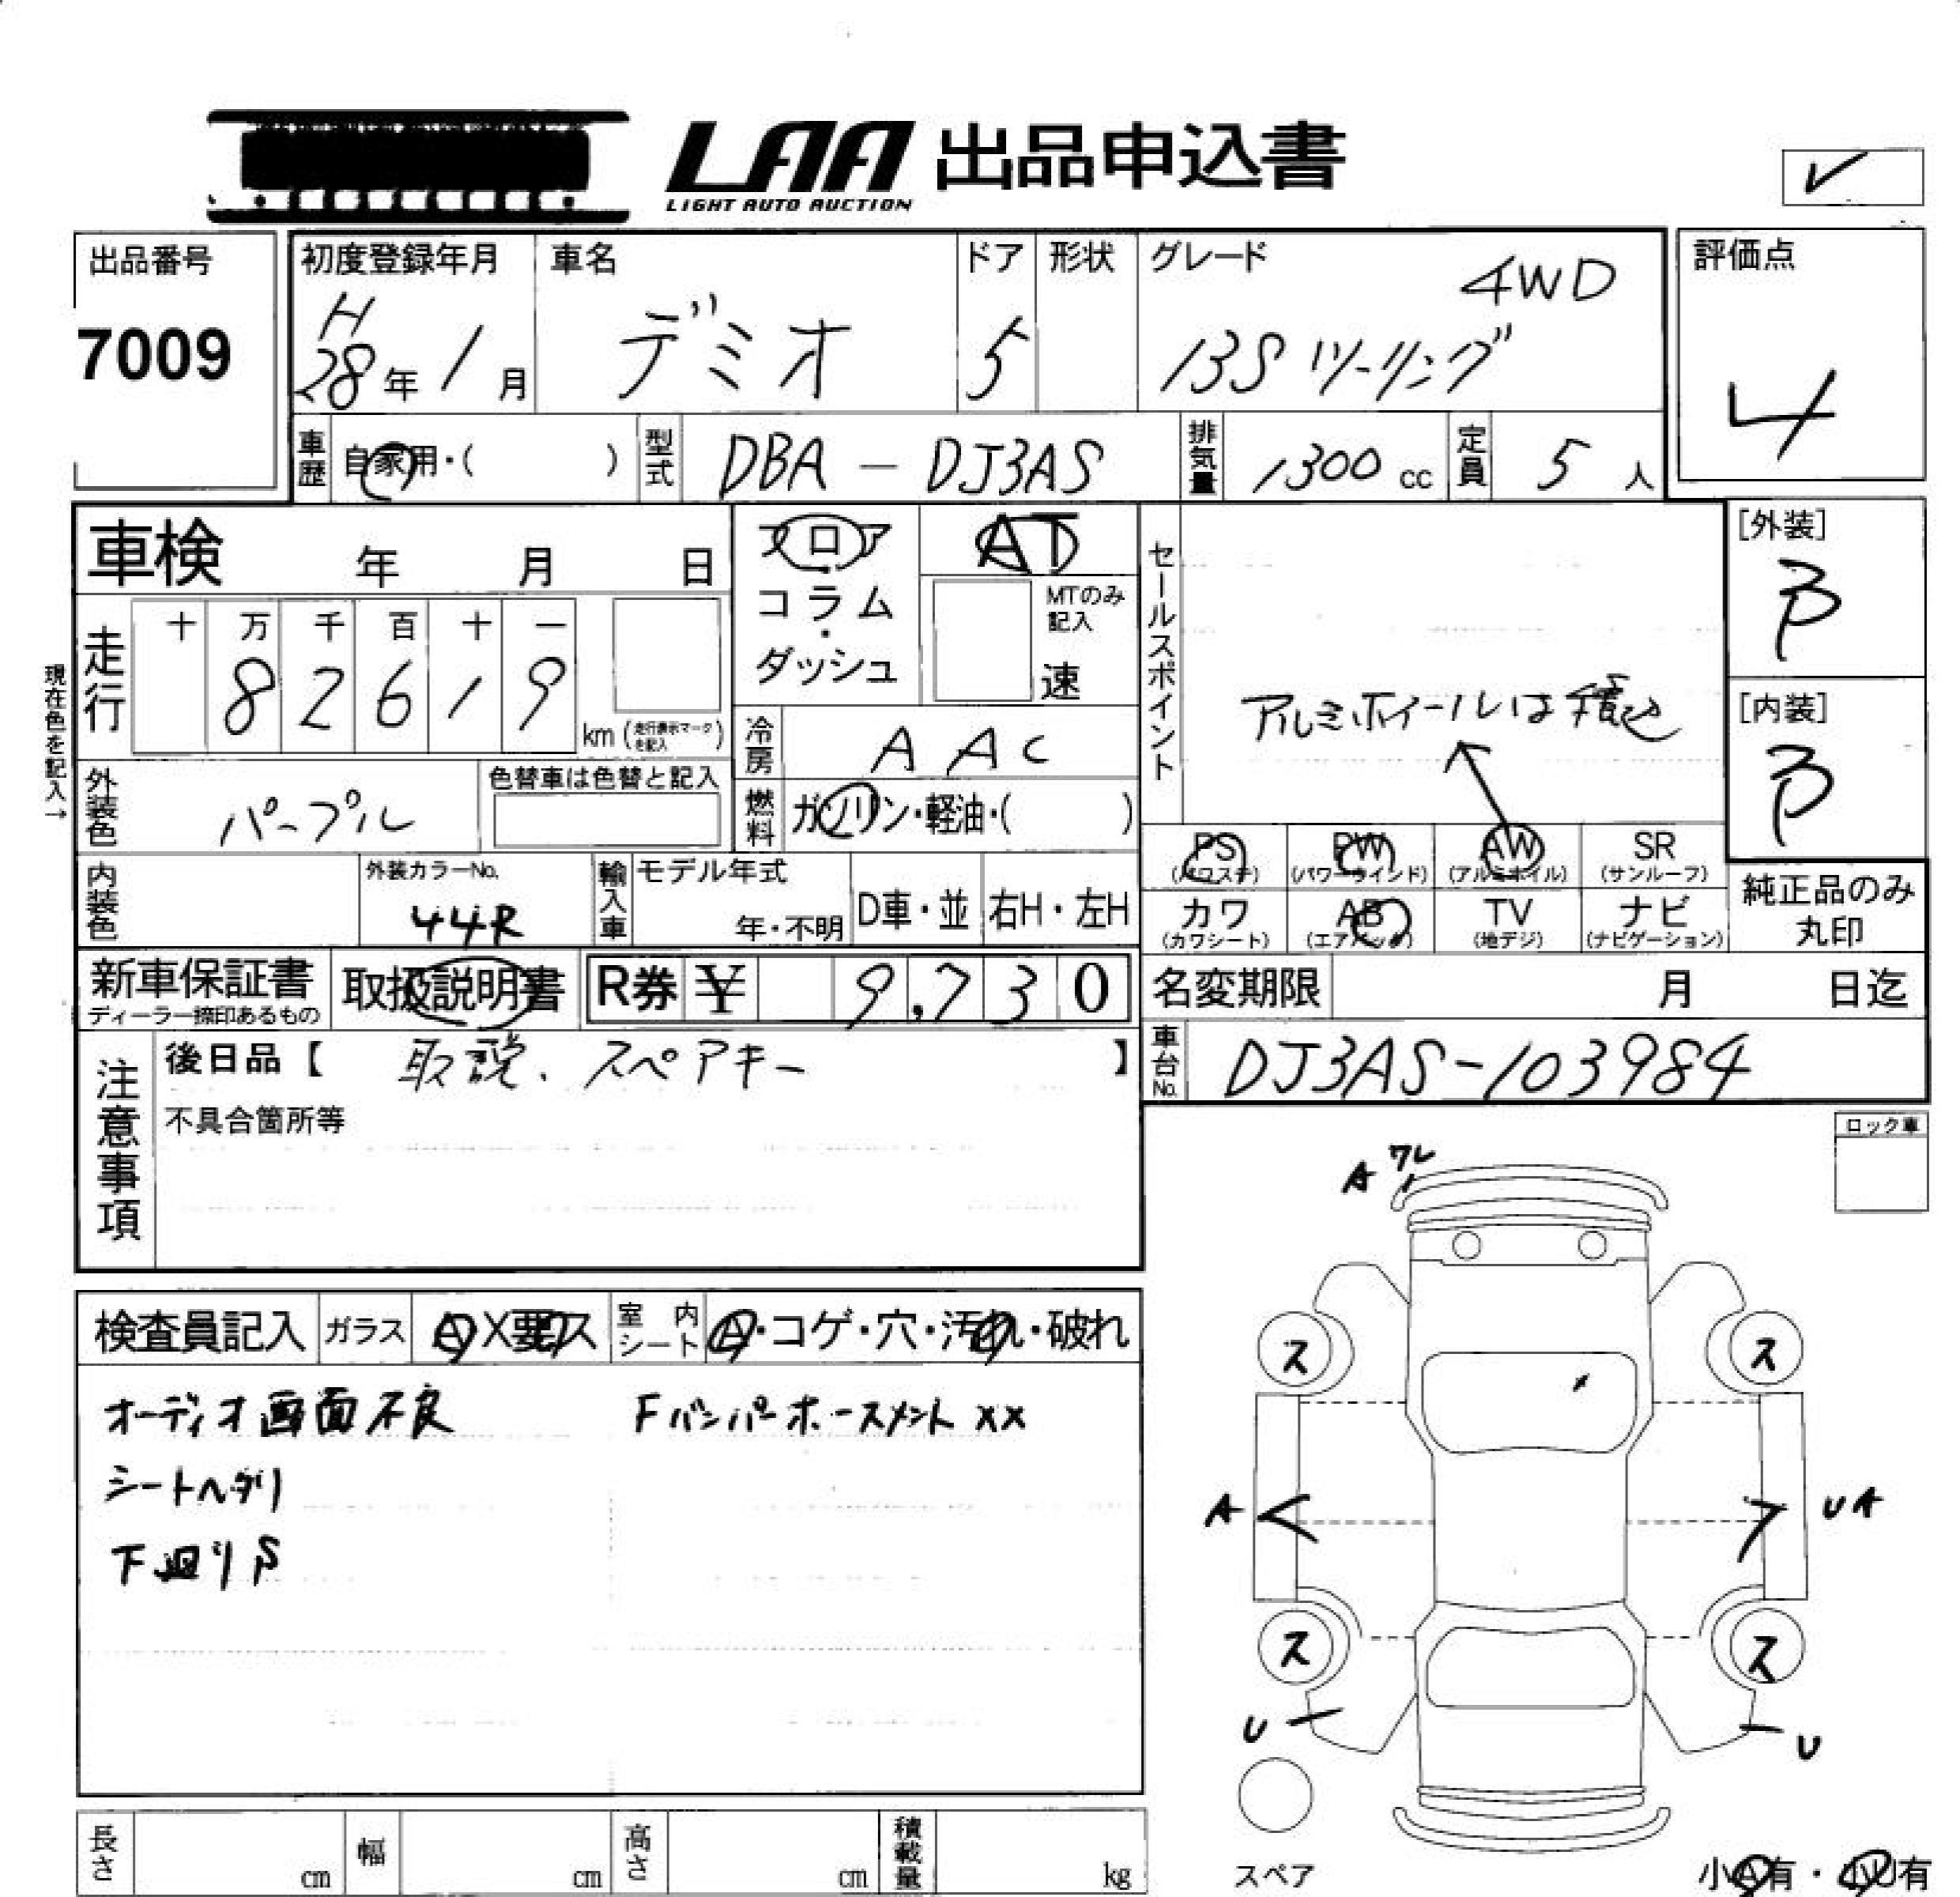 LAA 出品申込書
LIGHT AUTO AUCTION
✓
出品番号 初度登録年月 車名 ドア 形状 グレード 評価点
7009 H28年1月 デミオ 5 13Sツーリング 4WD 4
車歴 自家用・( ) 型式 DBA-DJ3AS 排気量 1300cc 定員 5人
車検 年 月 日
フロア・コラム・ダッシュ
AT
MTのみ記入
速
セールスポイント
アルミホイールは積込
[外装]
B
[内装]
B
現在色を記入→
走行 十 万 千 百 十 一
8 2 6 1 9 km(走行表示マークを記入)
冷房 AAC
外装色 パープル 色替車は色替と記入
燃料 ガソリン・軽油・( )
内装色 外装カラーNo. 44R
輸入車 モデル年式 年・不明 D車・並 右H・左H
PS(パワステ) PW(パワーウインド) AW(アルミホイル) SR(サンルーフ)
カワ(カワシート) AB(エアバッグ) TV(地デジ) ナビ(ナビゲーション)
純正品のみ丸印
新車保証書 ディーラー捺印あるもの 取扱説明書 R券 ¥ 9,730
名変期限 月 日迄
注意事項
後日品【 取説、スペアキー 】
車台No. DJ3AS-103984
不具合箇所等
ロック車
A ワレ
検査員記入 ガラス A X要ス 室内シート A・コゲ・穴・汚れ・破れ
オーディオ画面不良 Fバンパーホースメント XX
シートヘタリ
下廻りS
ス ス
A UA
ス ス
U U
スペア
長さ cm 幅 cm 高さ cm 積載量 kg
小A有・小U有